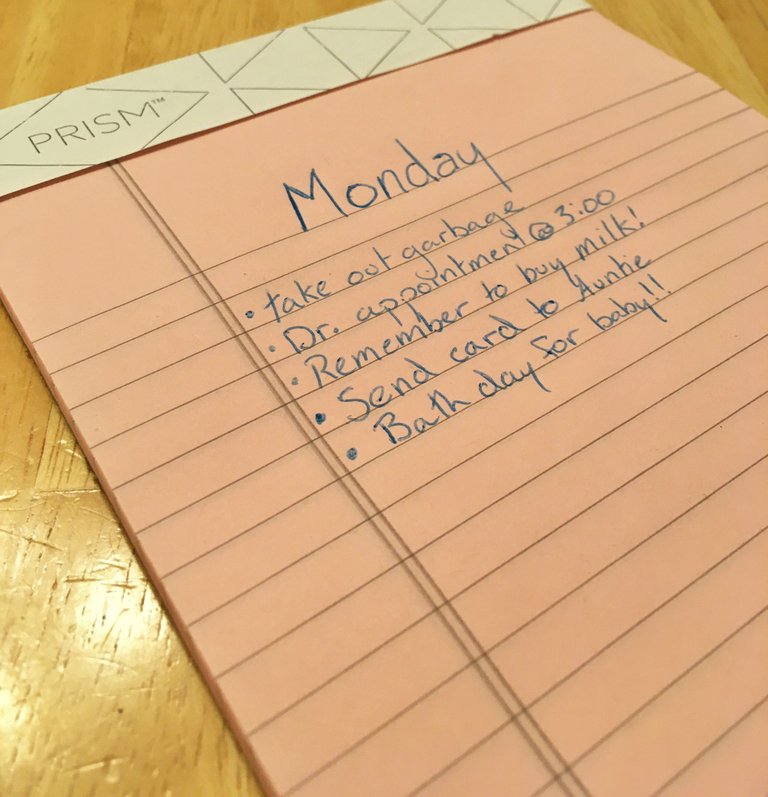 PRISM™
Monday
• take out garbage
• Dr. appointment @ 3:00
• Remember to buy milk!
• Send card to Auntie
• Bath day for baby!!